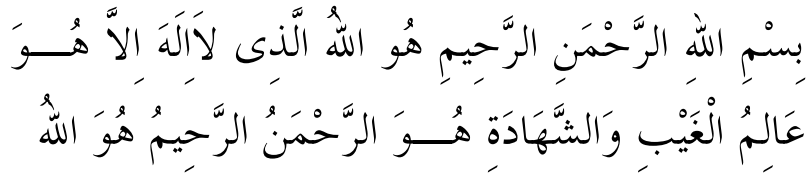 بِسْمِ اللهِ الرَّحْمَنِ الرَّحِيمِ هُو اللهُ الَّذِى لاَاِلَهَ اِلاَّ هُـــوَ
عَالِمُ الْغَيْبِ وَالشَّهَادَةِ هُـــوَ الرَّحْمَنُ الرَّحِيمُ هُوَ اللهُ